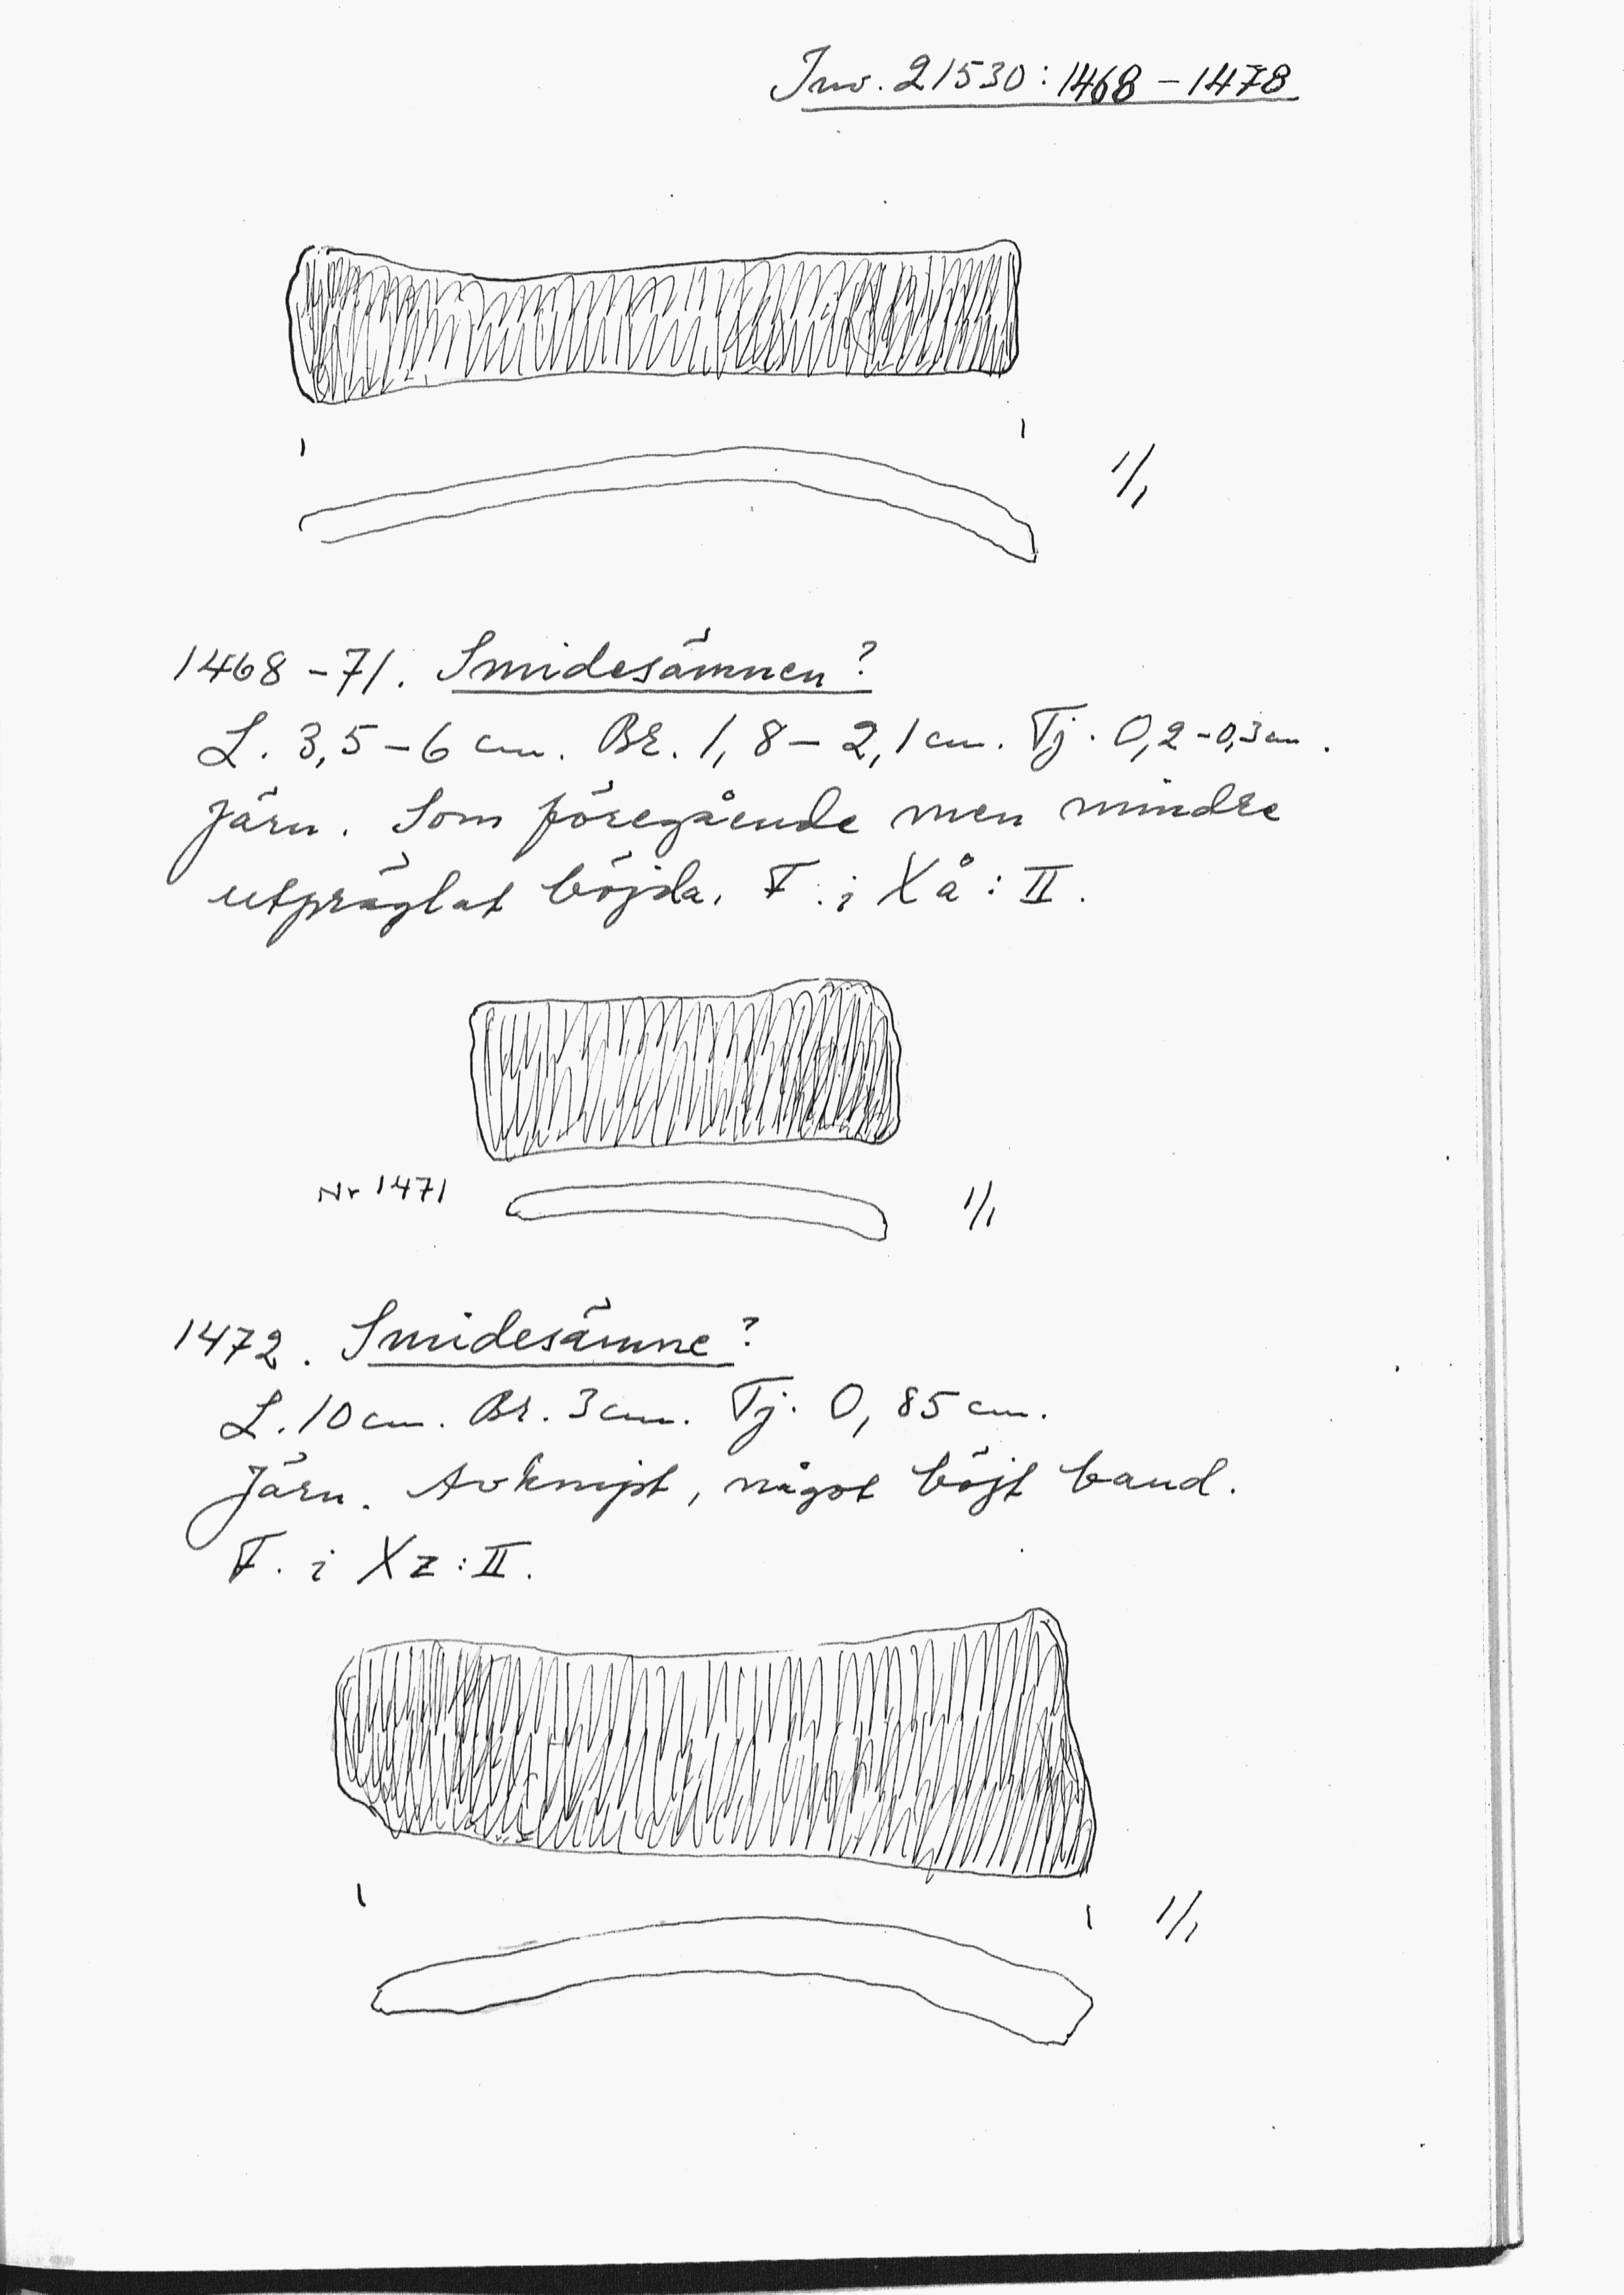 Inv. 21530:1468-1478
1/1
1468-71. Smidesämnen?
L. 3,5-6 cm. Br. 1,8-2,1 cm. Tj. 0,2-0,3 cm.
Järn. Som föregående men mindre
utpräglat böjda. F. i Xå:II.
Nr 1471
1/1
1472. Smidesämne?
L. 10 cm. Br. 3 cm. Tj. 0,85 cm.
Järn. Avknipt, något böjt band.
F. i Xz:II.
1/1